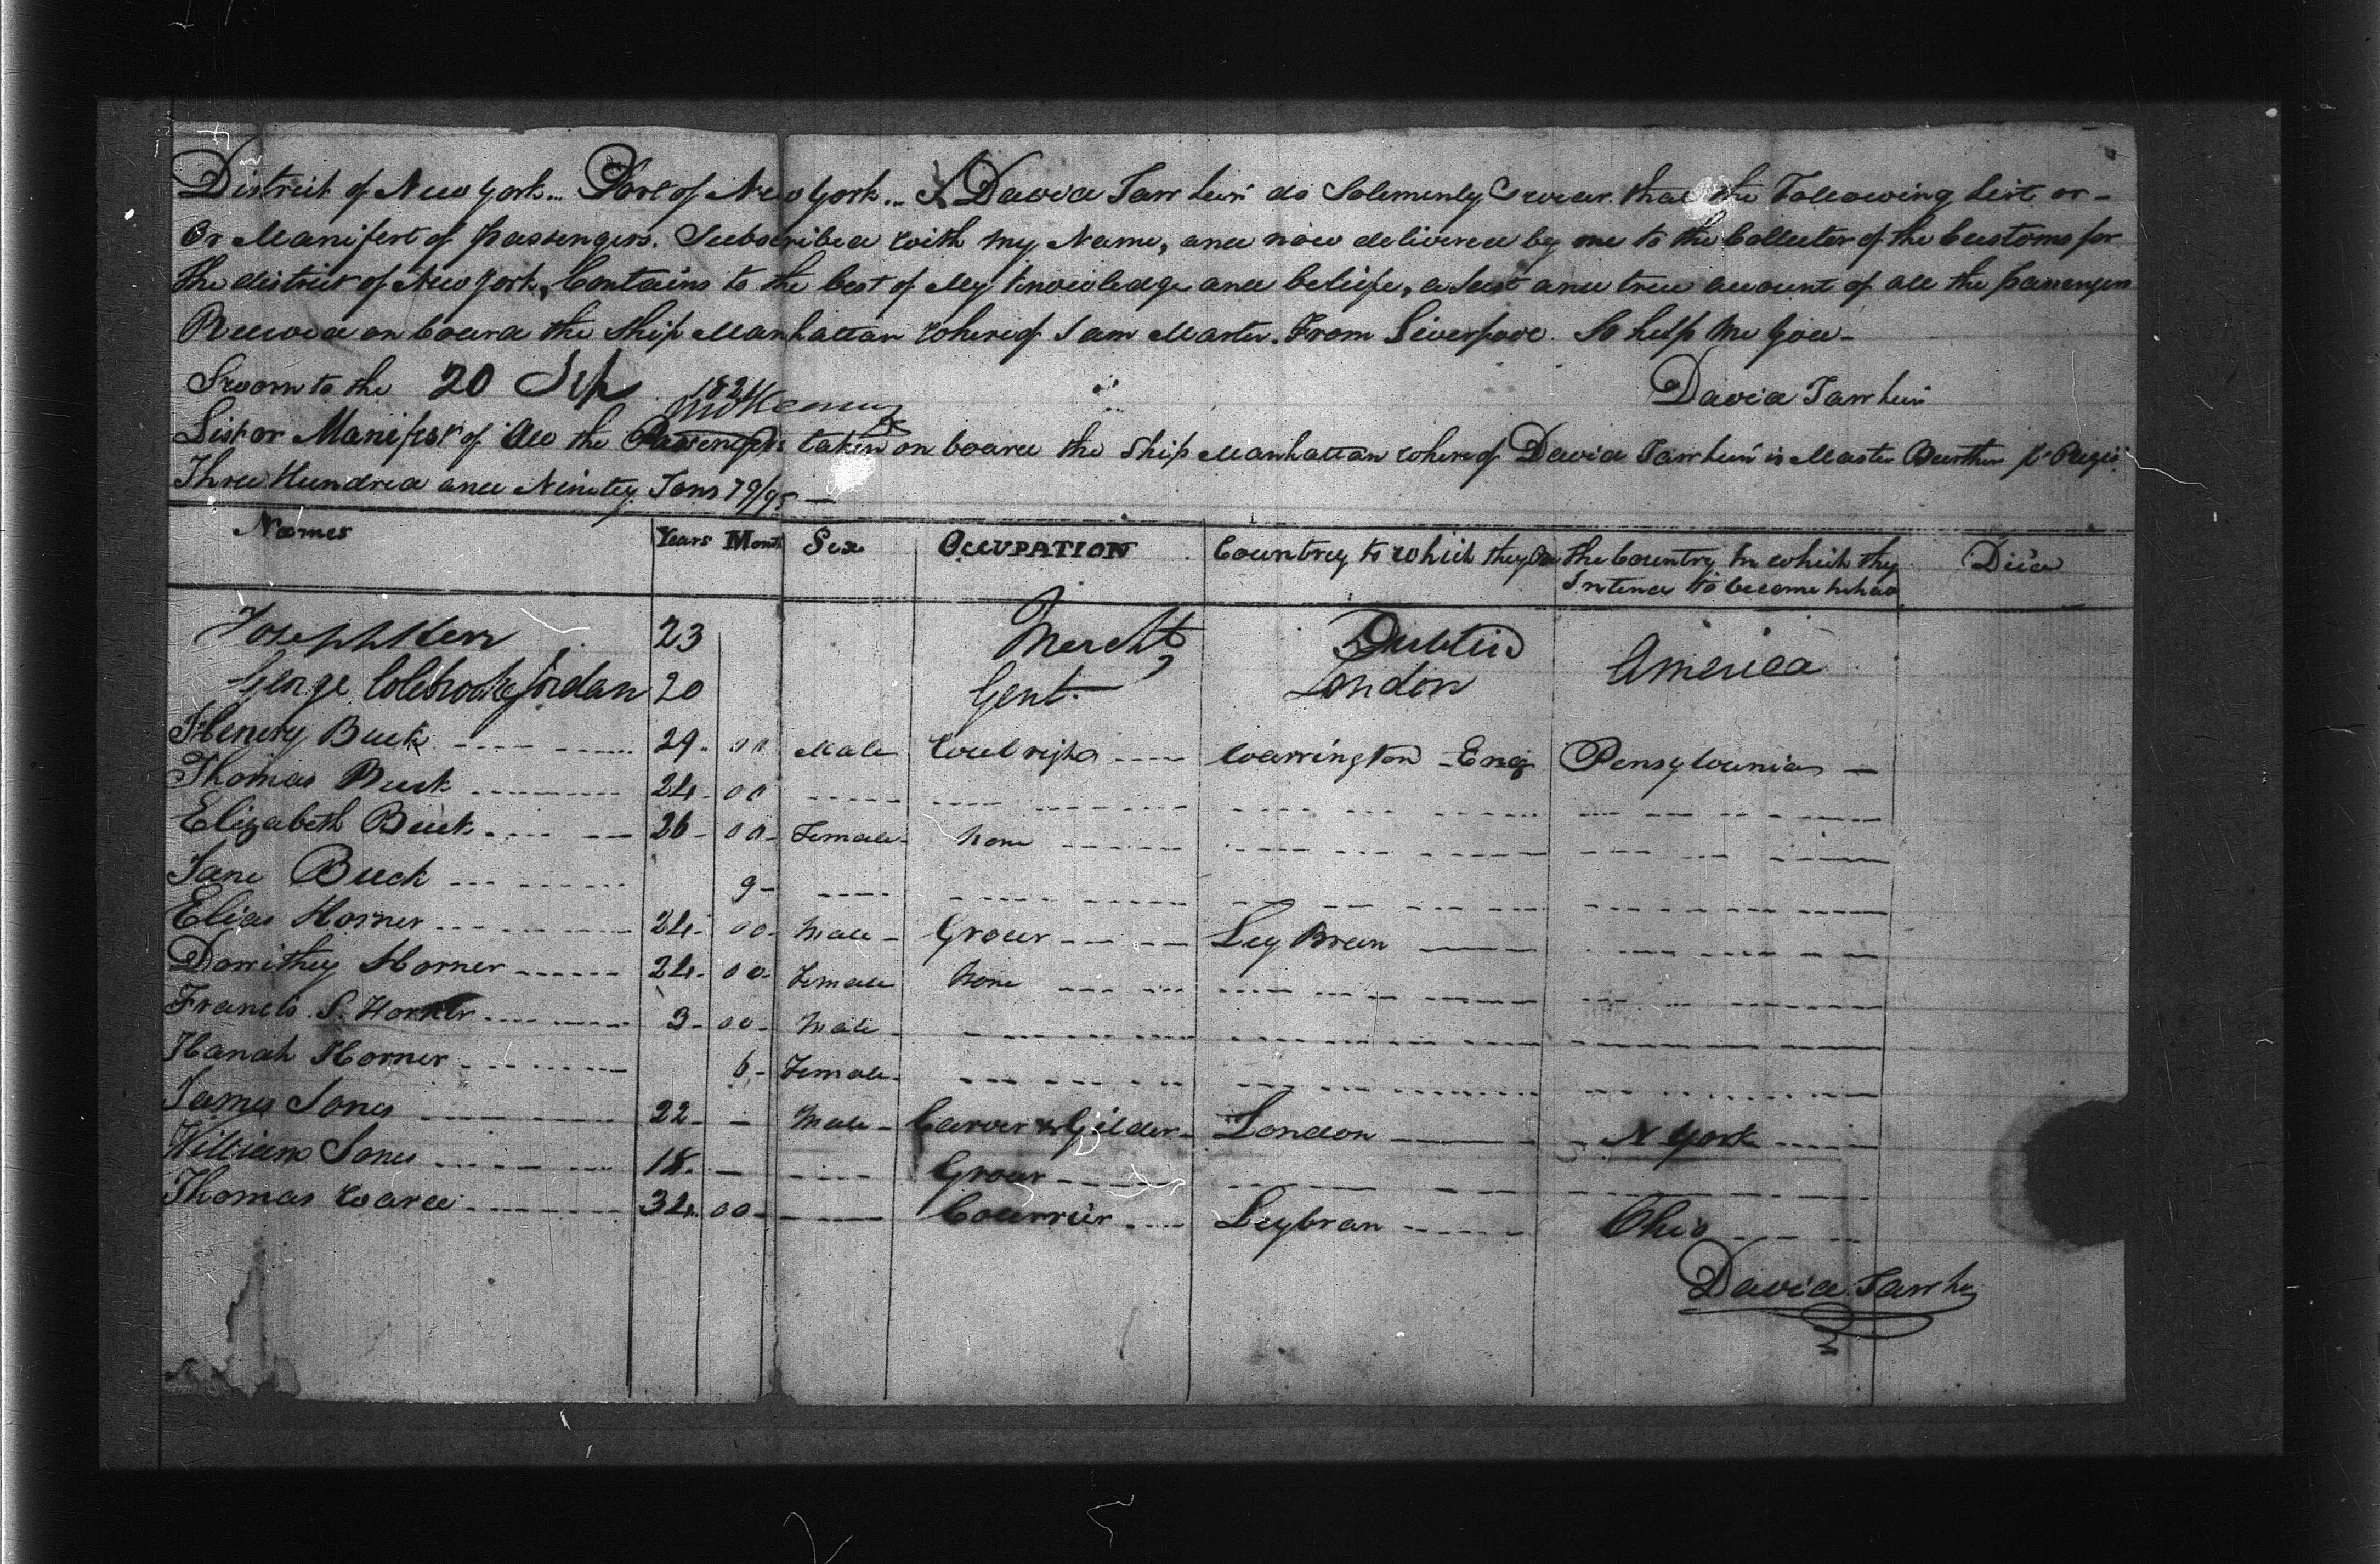 District of New York... Port of New York... I David Tarr Jun do Solemenly Swear that the Following List or -
Or Manifest of passengers. Subscribed with my Name, and now delivered by me to the Collecter of the Customs for
the district of New York, Contains to the best of My knowledge and beliefe, a Just and true account of all the passengers
Received on board the Ship Manhattan whereof I am Master. From Liverpool. So help Me God -
Sworn to the 20 Sep 1821 David Tarr Jun
List or Manifest of All the Passengers taken on board the Ship Manhattan whereof David Tarr Jun is Master Burthen pr Regis
Three Hundred and Ninety Tons 79/95 —
Names Years Month Sex OCCUPATION Country to which they the Country to which they Intend to become Died
Joseph Kerr 23 Mercht Dublin America
George Colebrooke Jordan 20 Gent. London
Henery Buck 29 - 00 Male Weelright Warrington - Eng Pensylvania —
Thomas Buck 24 - 00
Elizabeth Buck 26 - 00 - Female - None
Jane Buck 9 -
Elias Horner 24 - 00 - Male - Grocer Ley Bren
Dorrithey Horner 24 - 00 - Female None
Francis. S. Horner 3 - 00 - Male
Hanah Horner 6 - Female -
James Jones 22 - - Male - Carver & Gilder London N York
William Jones 18. - Grocer
Thomas Ward 34. 00 - Courrier Leybran Ohio
David Tarr Ju